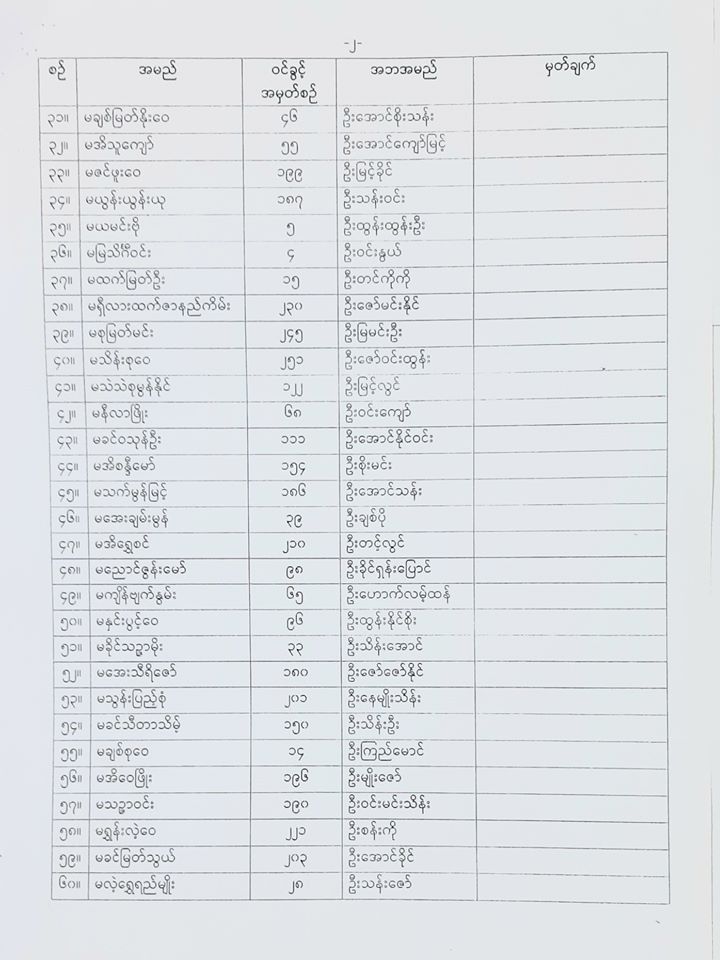 -၂-
စဉ် အမည် ဝင်ခွင့် အမှတ်စဉ် အဘအမည် မှတ်ချက်
၃၁။ မချစ်မြတ်နိုးဝေ ၄၆ ဦးအောင်စိုးသန်း
၃၂။ မအိသူကျော် ၅၅ ဦးအောင်ကျော်မြင့်
၃၃။ မဇင်ဖူးဝေ ၁၉၉ ဦးမြင့်ခိုင်
၃၄။ မယွန်းယွန်းယု ၁၈၇ ဦးသန်းဝင်း
၃၅။ မယမင်းဗို ၅ ဦးထွန်းထွန်းဦး
၃၆။ မမြသိင်္ဂီဝင်း ၄ ဦးဝင်းနွယ်
၃၇။ မထက်မြတ်ဦး ၁၅ ဦးတင်ကိုကို
၃၈။ မရှီလားထက်ဇာနည်ကိမ်း ၂၃၀ ဦးဇော်မင်းနိုင်
၃၉။ မစုမြတ်မင်း ၂၄၅ ဦးမြမင်းဦး
၄၀။ မသိန်းစုဝေ ၂၅၁ ဦးဇော်ဝင်းထွန်း
၄၁။ မသဲသဲစုမွန်နိုင် ၁၂၂ ဦးမြင့်လွင်
၄၂။ မနီလာဖြိုး ၆၈ ဦးဝင်းကျော်
၄၃။ မခင်ဝသုန်ဦး ၁၁၁ ဦးအောင်နိုင်ဝင်း
၄၄။ မအိစန္ဒီမော် ၁၅၄ ဦးစိုးမင်း
၄၅။ မသက်မွန်မြင့် ၁၈၆ ဦးအောင်သန်း
၄၆။ မအေးချမ်းမွန် ၃၉ ဦးချစ်ပို
၄၇။ မအိရွှေစင် ၂၁၀ ဦးတင့်လွင်
၄၈။ မညောင်ဇွန်းမော် ၉၈ ဦးခိုင်ရှန်းပြောင်
၄၉။ မကျိန်ဗျက်နွမ်း ၆၅ ဦးဟောက်လမ့်ထန်
၅၀။ မနှင်းပွင့်ဝေ ၉၆ ဦးထွန်းနိုင်စိုး
၅၁။ မခိုင်သဥ္ဇာမိုး ၃၃ ဦးသိန်းအောင်
၅၂။ မအေးသီရိဇော် ၁၈၀ ဦးဇော်ဇော်နိုင်
၅၃။ မသွန်းပြည့်စုံ ၂၀၁ ဦးနေမျိုးသိန်း
၅၄။ မခင်သီတာသိမ့် ၁၅၀ ဦးသိန်းဦး
၅၅။ မချစ်စုဝေ ၁၄ ဦးကြည်မောင်
၅၆။ မအိဝေဖြိုး ၁၉၆ ဦးမျိုးဇော်
၅၇။ မသဥ္ဇာဝင်း ၁၉၀ ဦးဝင်းမင်းသိန်း
၅၈။ မရွှန်းလဲ့ဝေ ၂၂၁ ဦးစန်းကို
၅၉။ မခင်မြတ်သွယ် ၂၀၃ ဦးအောင်ခိုင်
၆၀။ မလဲ့ရွှေရည်မျိုး ၂၈ ဦးသန်းဇော်